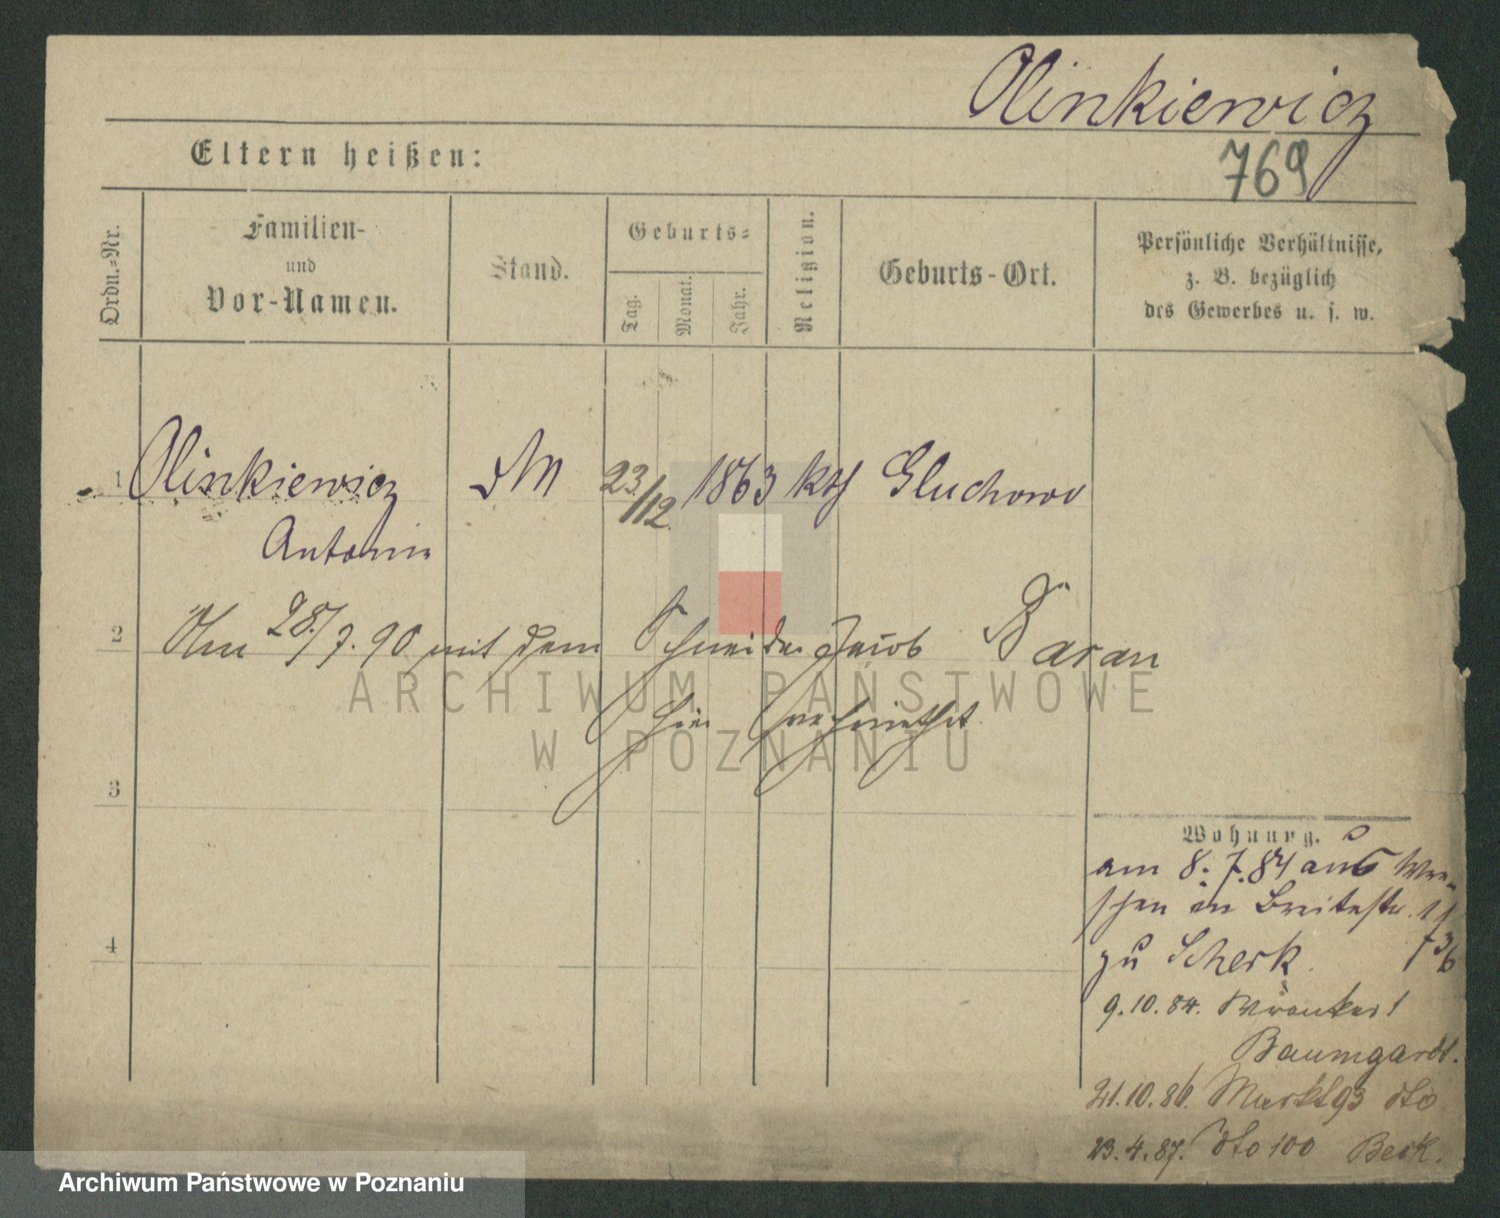 Olinkiewicz
769
Eltern heißen:
Ordn.-Nr.
Familien-
und
Vor-Namen.
Stand.
Geburts-
Tag.
Monat.
Jahr.
Religion.
Geburts-Ort.
Persönliche Verhältnisse,
z. B. bezüglich
des Gewerbes u. s. w.
1 Olinkiewicz DM 23/12. 1863 kth Gluchowo
Antonie
2 Am 28/7. 90 mit dem Schneider Jacob Baran
hier verheirathet
ARCHIWUM PAŃSTWOWE
W POZNANIU
3
4
Wohnung.
am 8. 7. 84 aus Wre-
schen in Breitestr. 11
zu Scherk. 736
9. 10. 84. Wronkerst
Baumgardt.
21. 10. 86. Markt 93 dto
23. 4. 87. dto 100 Beck.
Archiwum Państwowe w Poznaniu